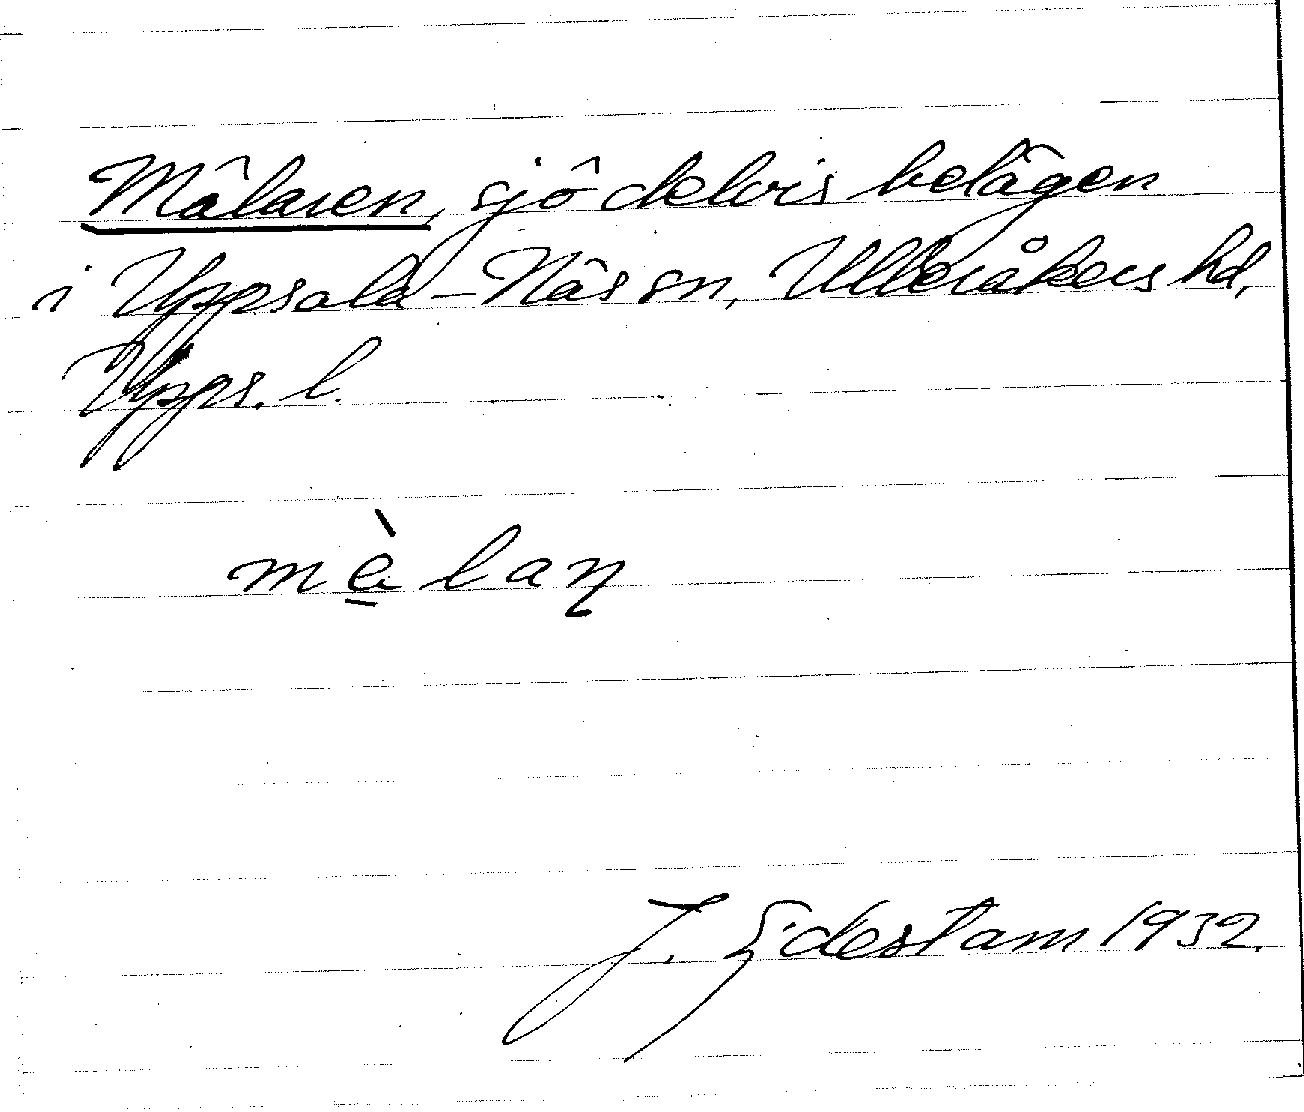 Mälaren, sjö delvis belägen
i Uppsala-Näs sn, Ulleråkers hd,
Upps. l.
mὰ̱laꞃ
J. Eidestam 1932.